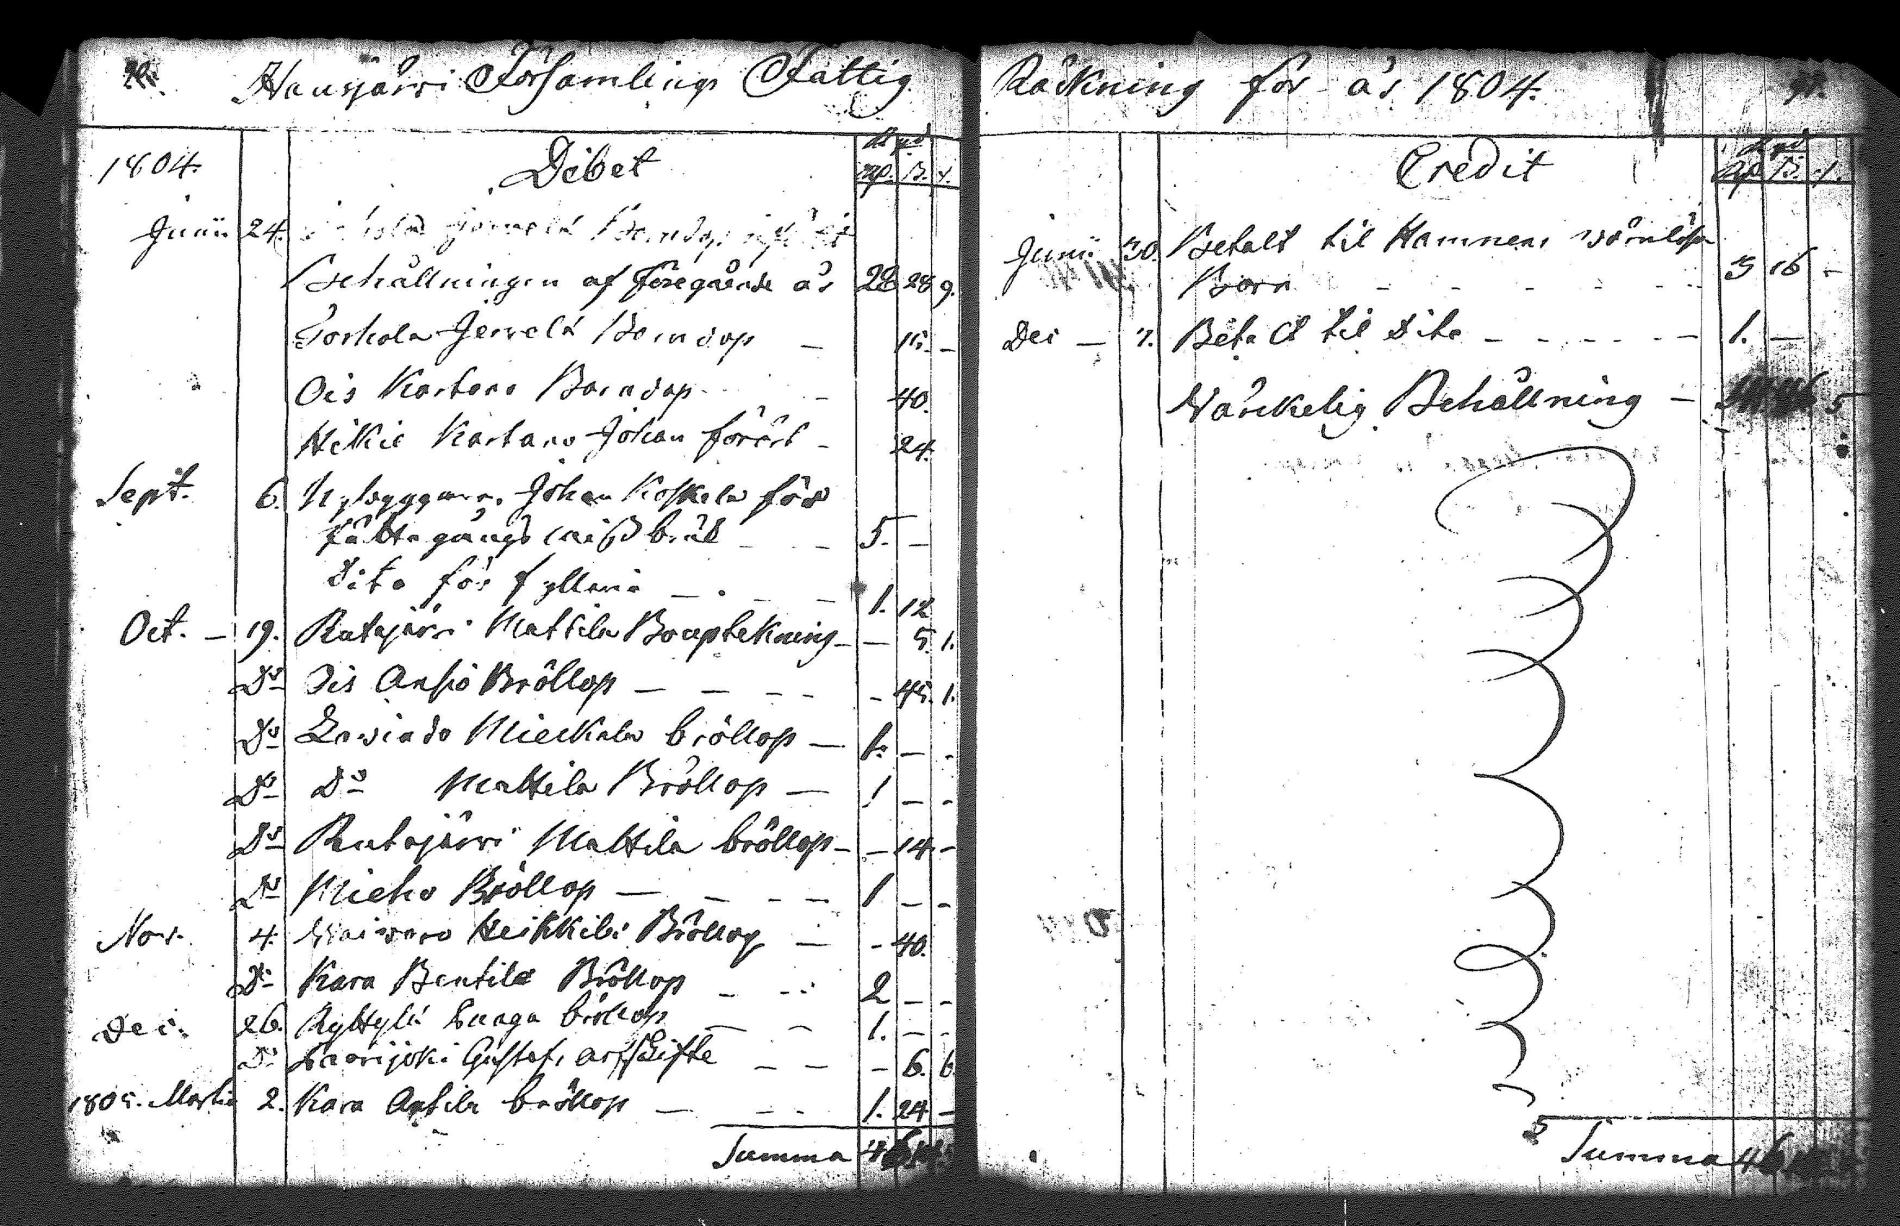 Hausjärvi Församlings Fattig Räkning för år 1804.
1804. Debet Rgd
Rp. ß. r.
Junii 24.
Behållningen af föregående år 28 28 9.
Torhola Jervelä Barndop — 15. —
Ois Kartano Barndop - 40.
Hikie Kartano Johan förärt - 24.
Sept. 6. Nybyggaren Johan Koskela för
5. —
Dito för fylleri — 1. 12
Oct. — 19. Rutajärvi Mattila Bouptekning — — 5. 1.
Do Ois Ansio Bröllop — — - - - 45. 1.
Do Lavinto Mieckala bröllop — 1. — -
Do Do Mattila Bröllop — 1 — -
Do Rutajärvi Mattila bröllop — — 14. -
Do Mieho Bröllop — 1 — -
Nov. 4. Heikkilä Bröllop — - 40.
Do Kara Bentilä Bröllop 2 — -
Dec. 26. Ryttylä bröllop — 1. — -
Do Gustafs arfskifte — — - 6. 6.
1805. Martii 2. Kara Antila bröllop — 1. 24 —
Summa
Credit Rgd
Rp. ß. r.
Junii 30. Betalt til Hamnens wärnlösa
Barn - - - - 3 16 -
Dec — 7. Betalt til Dito - - - - 1. —
Wärckelig Behållning — 5
5
Summa